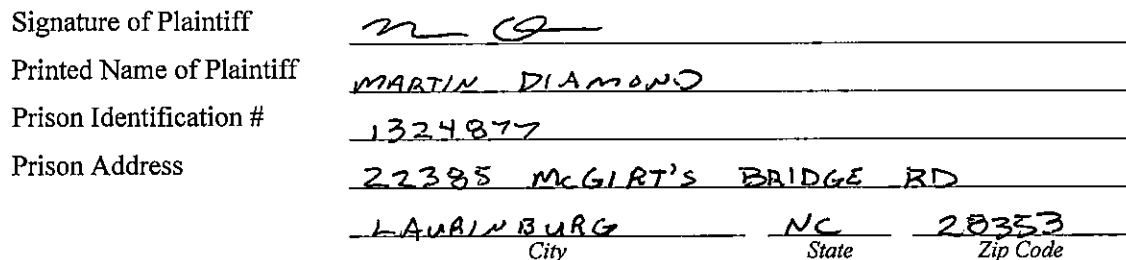 Signature of Plaintiff
Printed Name of Plaintiff MARTIN DIAMOND
Prison Identification # 1324877
Prison Address 22385 McGIRT'S BRIDGE RD
LAURINBURG NC 28353
City State Zip Code